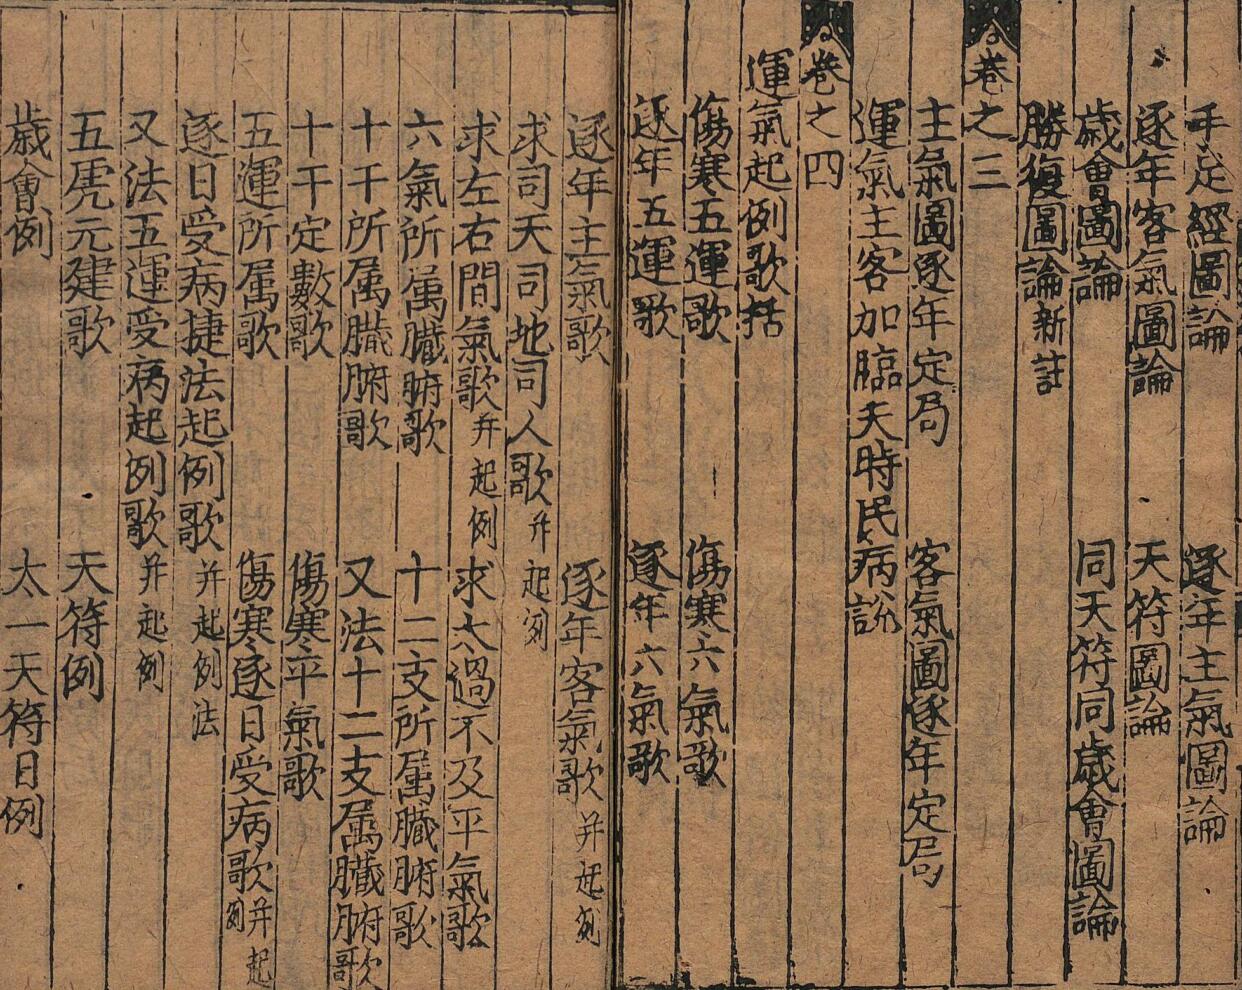 手足經圖論　逐年主氣圖論
逐年客氣圖論　天符圖論
歲會圖論　同天符同歲會圖論
勝復圖論新註
卷之三
主氣圖逐年定局　客氣圖逐年定局
運氣主客加臨天時民病說
卷之四
運氣起例歌括
傷寒五運歌　傷寒六氣歌
逐年五運歌　逐年六氣歌
逐年主氣歌　逐年客氣歌并起例
求司天司地司人歌并起例
求左右間氣歌并起例　求太過不及平氣歌
六氣所属臟腑歌　十二支所属臟腑歌
十干所属臟腑歌　又法十二支属臟腑歌
十干定數歌　傷寒平氣歌
五運所属歌　傷寒逐日受病歌并起例
逐日受病捷法起例歌并起例法
又法五運受病起例歌并起例
五虎元建歌　天符例
歲會例　太一天符日例